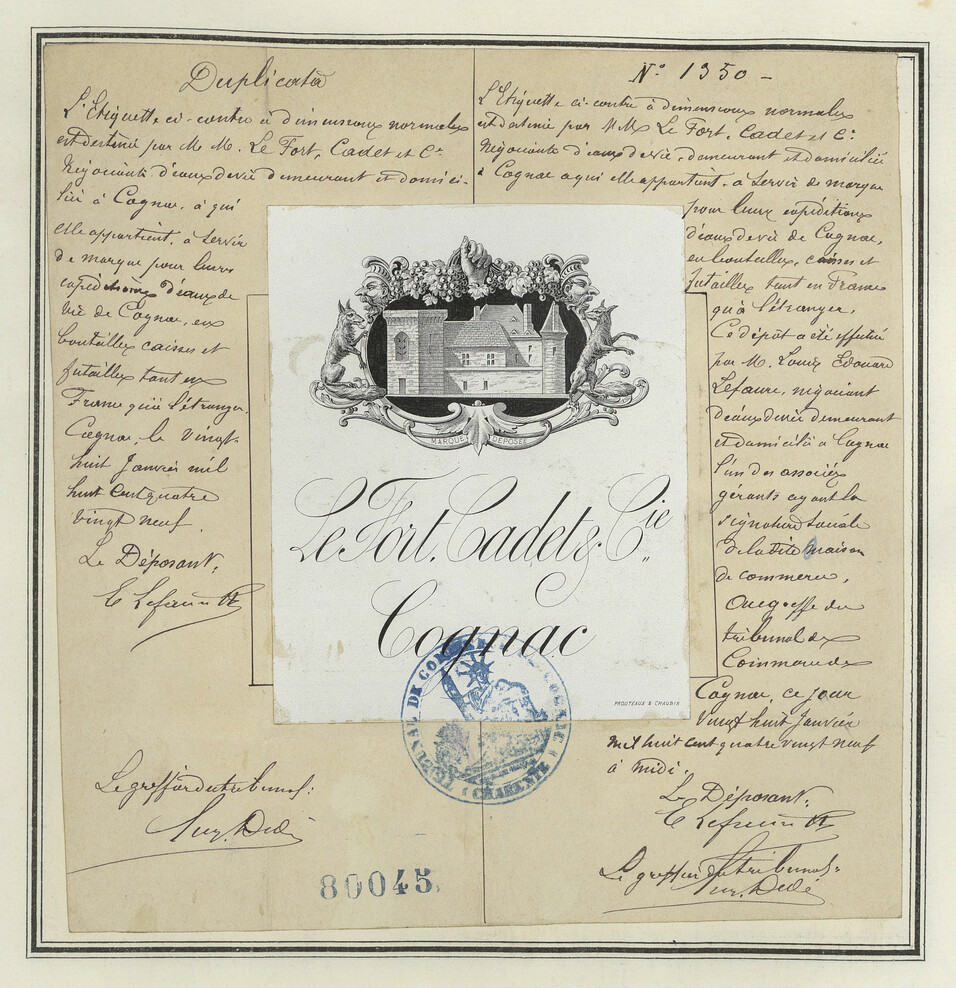 Duplicata
L'Etiquette ci-contre à dimensions normales
est destinée par M. M. Le Fort, Cadet et Cie
Négociants d'eaux de vie demeurant et domici-
liés à Cognac, à qui
elle appartient, à servir
de marque pour leurs
expéditions d'eaux de
vie de Cognac, en
bouteilles caisses et
futailles tant en
France qu'à l'étranger.
Cognac, le vingt-
huit Janvier mil
huit cent quatre
vingt neuf.
Le Déposant,
E Lefaure
Le greffier du tribunal:
N° 1350 -
L'Etiquette ci-contre à dimensions normales
est destinée par MM. Le Fort, Cadet et Cie
Négociants d'eaux de vie, demeurant et domiciliés
à Cognac a qui elle appartient, à servir de marque
pour leurs expéditions
d'eaux de vie de Cognac,
en bouteilles, caisses et
futailles tant en France
qu'à l'étranger.
Ce dépôt a été effectué
par M. Louis Edouard
Lefaure, négociant
d'eaux de vie demeurant
et domicilié à Cognac
l'un des associés
gérants ayant la
signature sociale
de la dite maison
de commerce,
Au greffe du
tribunal de
Commerce de
Cognac, ce jour
Vingt huit Janvier
mil huit cent quatre vingt neuf
à midi.
Le Déposant,
E Lefaure
Le greffier du tribunal:
MARQUE DÉPOSÉE
Le Fort, Cadet & Cie
Cognac
PROUTEAUX & CHAUBIN
TRIBUNAL DE COMMERCE DE COGNAC
(CHARENTE)
80045.